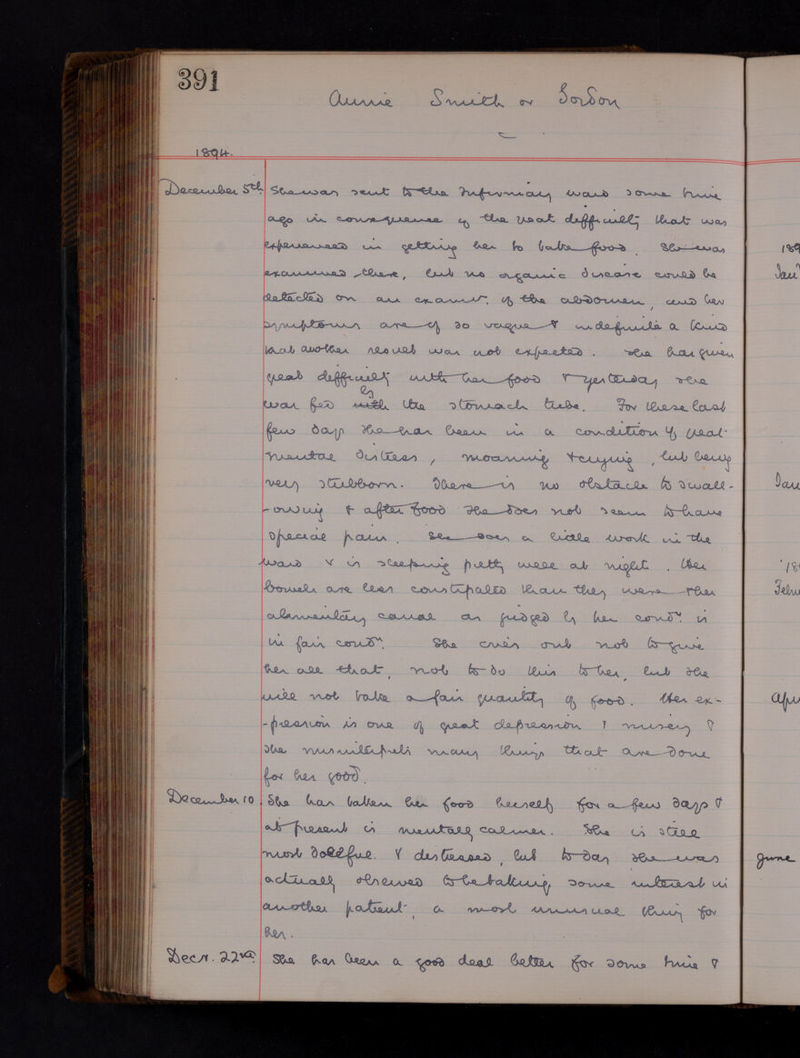 391
Annie Smith or Gordon
1894.
December 5th She was sent to the Infirmary ward some time
ago in consequence of the great difficulty that was
experienced in getting her to take food. She was
examined there, but no organic disease could be
detected on an examn. of the abdomen, and her
symptoms are of so vague & indefinite a kind
that another result was not expected. She has given
great difficulty with her food & yesterday she
was fed with by the stomach tube. For these last
few days she has been in a condition of great
mental distress, moaning & crying, but being
very stubborn. There is no obstacle to swall-
-owing & after food she does not seem to have
special pain. She does a little work in the
ward & is sleeping pretty well at night. Her
bowels are less constipated than they were. The
alimentary canal as judged by her condn. is
in fair condn. She cries out not to give
her all that, not to do this to her, but she
will not take a fair quantity of food. Her ex-
-pression is one of great depression & misery &
she misinterprets many things that are done
for her good.
December 10. She has taken her food herself for a few days &
at present is mentally calmer. She is still
most doleful & distressed, but to-day she was
actually observed to be taking some interest in
another patient, a most unusual thing for
her.
Decr. 22nd She has been a good deal better for some time &
189
Jany
Jan
189
Febru
Apr
June